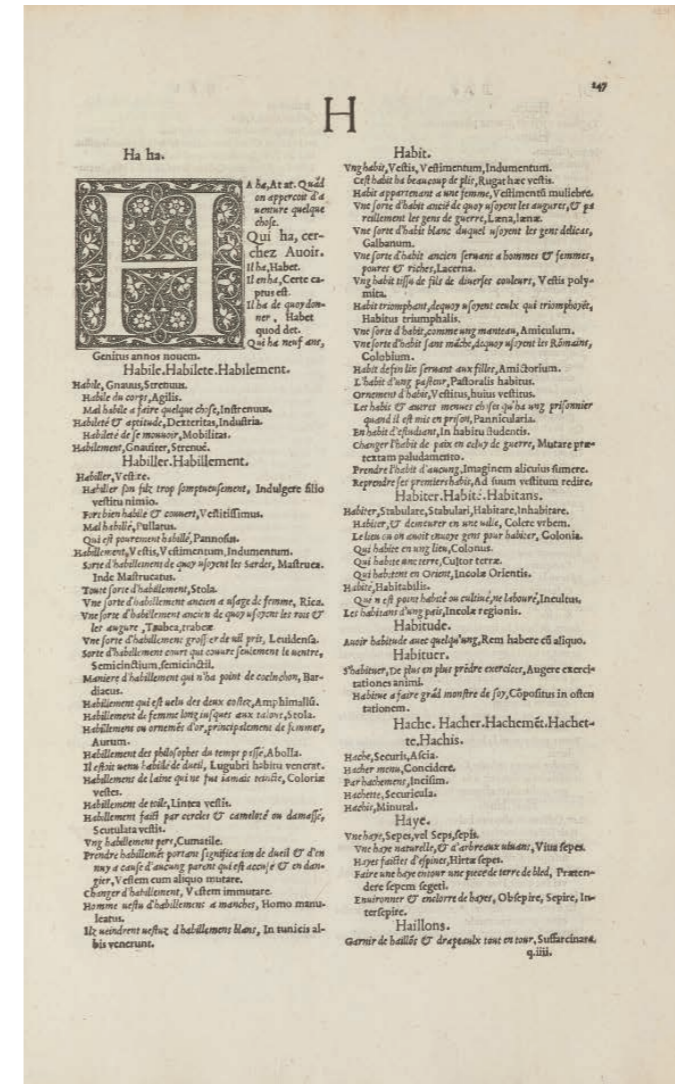 247
H
Ha ha.
A ha, At at. Quãd
on apperçoit d'a
uenture quelque
chose.
Qui ha, cer-
chez Auoir.
Il ha, Habet.
Il en ha, Certe ca-
ptus est.
Il ha de quoy don-
ner, Habet
quod det.
Qui ha neuf ans,
Genitus annos nouem.
Habile. Habilete. Habilement.
Habile, Gnauus, Strenuus.
Habile du corps, Agilis.
Mal habile a faire quelque chose, Instrenuus.
Habileté & aptitude, Dexteritas, Industria.
Habileté de se mouuoir, Mobilitas.
Habilement, Gnauiter, Strenué.
Habiller. Habillement.
Habiller, Vestire.
Habiller son filz trop somptueusement, Indulgere filio
vestitu nimio.
Fort bien habillé & couuert, Vestitissimus.
Mal habillé, Pullatus.
Qui est pourement habillé, Pannosus.
Habillement, Vestis, Vestimentum, Indumentum.
Sorte d'habillement de quoy usoyent les Sardes, Mastruca.
Inde Mastrucatus.
Toute sorte d'habillement, Stola.
Vne sorte d'habillement ancien a usage de femme, Rica.
Vne sorte d'habillement ancien de quoy usoyent les rois &
les augure, Trabea, trabeæ
Vne sorte d'habillement grossier de uil pris, Leuidensa.
Sorte d'habillement court qui couure seulement le uentre,
Semicinctium, semicinctii.
Maniere d'habillement qui n'ha point de coeluchon, Bar-
diacus.
Habillement qui est uelu des deux costez, Amphimallũ.
Habillement de femme long iusques aux talons, Stola.
Habillemens ou ornemẽs d'or, principalement de femmes,
Aurum.
Habillement des philosophes du temps passé, Abolla.
Il estoit uenu habillé de dueil, Lugubri habitu venerat.
Habillemens de laine qui ne fut iamais teincte, Coloriæ
vestes.
Habillement de toile, Lintea vestis.
Habillement faict par cercles & camelotté ou damassé,
Scutulata vestis.
Vng habillement pers, Cumatile.
Prendre habillemẽs portant signification de dueil & d'en
nuy a cause d'aucung parent qui est accusé & en dan-
gier, Vestem cum aliquo mutare.
Changer d'habillement, Vestem immutare.
Homme uestu d'habillement a manches, Homo manu-
leatus.
Ilz ueindrent uestuz d'habillemens blans, In tunicis al-
bis venerunt.
Habit.
Vng habit, Vestis, Vestimentum, Indumentum.
Cest habit ha beaucoup de plis, Rugat hæc vestis.
Habit appartenant a une femme, Vestimentũ muliebre.
Vne sorte d'habit anciẽ de quoy usoyent les augures, & pa
reillement les gens de guerre, Læna, lænæ.
Vne sorte d'habit blanc duquel usoyent les gens delicas,
Galbanum.
Vne sorte d'habit ancien seruant a hommes & femmes,
poures & riches, Lacerna.
Vng habit tissu de fils de diuerses couleurs, Vestis poly-
mita.
Habit triomphant, dequoy usoyent ceulx qui triomphoyẽt,
Habitus triumphalis.
Vne sorte d'habit, comme ung manteau, Amiculum.
Vne sorte d'habit sans mãche, dequoy usoyent les Rõmains,
Colobium.
Habit de fin lin seruant aux filles, Amictorium.
L'habit d'ung pasteur, Pastoralis habitus.
Ornement d'habis, Vestitus, huius vestitus.
Les habis & autres menues choses qu'ha ung prisonnier
quand il est mis en prison, Pannicularia.
En habit d'estudiant, In habitu studentis.
Changer l'habit de paix en celuy de guerre, Mutare præ-
textam paludamento.
Prendre l'habit d'aucung, Imaginem alicuius sumere.
Reprendre ses premiers habis, Ad suum vestitum redire.
Habiter. Habité. Habitans.
Habiter, Stabulare, Stabulari, Habitare, Inhabitare.
Habiter, & demeurer en une uille, Colere vrbem.
Le lieu ou on anoit enuoyé gens pour habiter, Colonia.
Qui habite en ung lieu, Colonus.
Qui habite une terre, Cultor terræ.
Qui habitent en Orient, Incolæ Orientis.
Habité, Habitabilis.
Qui n'est point habité ou cultiué, ne labouré, Incultus.
Les habitans d'ung païs, Incolæ regionis.
Habitude.
Auoir habitude auec quelqu'ung, Rem habere cũ aliquo.
Habituer.
S'habituer, De plus en plus prẽdre exercices, Augere exerci-
tationes animi.
Habitué a faire grãd monstre de soy, Cõpositus in osten
tationem.
Hache. Hacher. Hachemẽt. Hachet-
te. Hachis.
Hache, Securis, Ascia.
Hacher menu, Concidere.
Par hachemens, Incisim.
Hachette, Securicula.
Hachis, Minutal.
Haye.
Vne haye, Sepes, vel Seps, sepis.
Vne haye naturelle, & d'arbreaux uiuans, Viua sepes.
Hayes faictes d'espines, Hirtæ sepes.
Faire une haye entour une piece de terre de bled, Præten-
dere sepem segeti.
Enuironner & enclorre de hayes, Obsepire, Sepire, In-
tersepire.
Haillons.
Garnir de haillõs & drapeaulx tout en tour, Suffarcinare.
q.iiii.